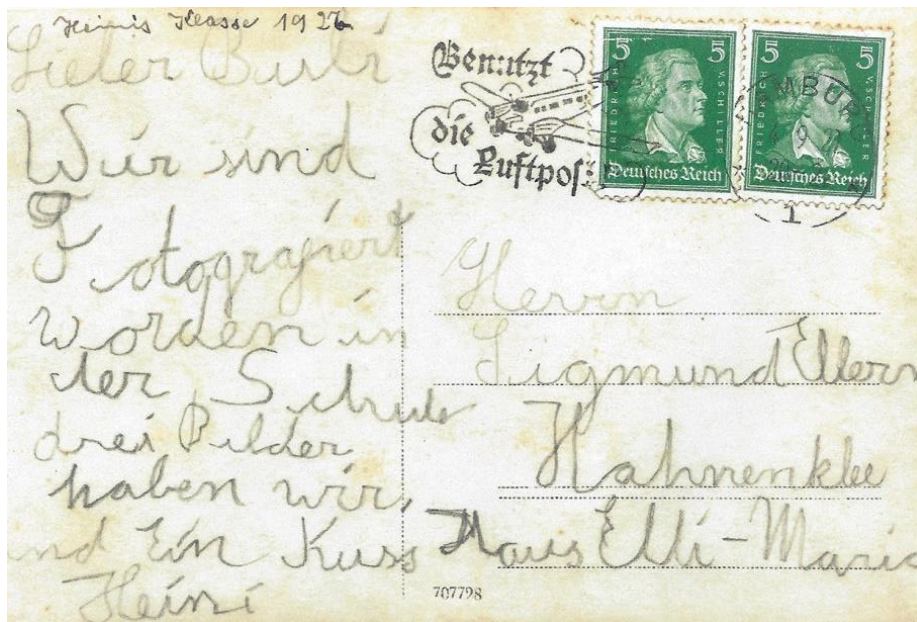 Heinis Klasse 1926
Lieber Burli
Wir sind
Fotografiert
worden in
der Schule
drei Bilder
haben wir,
und Ein Kuss
Heini
Benutzt
die
Luftpost
5 5
FRIEDRICH V. SCHILLER
Deutsches Reich
5 5
FRIEDRICH V. SCHILLER
Deutsches Reich
MBUR
9
1
Herrn
Sigmund Ellern
Hahnenklee
Haus Elli-Maria
707798